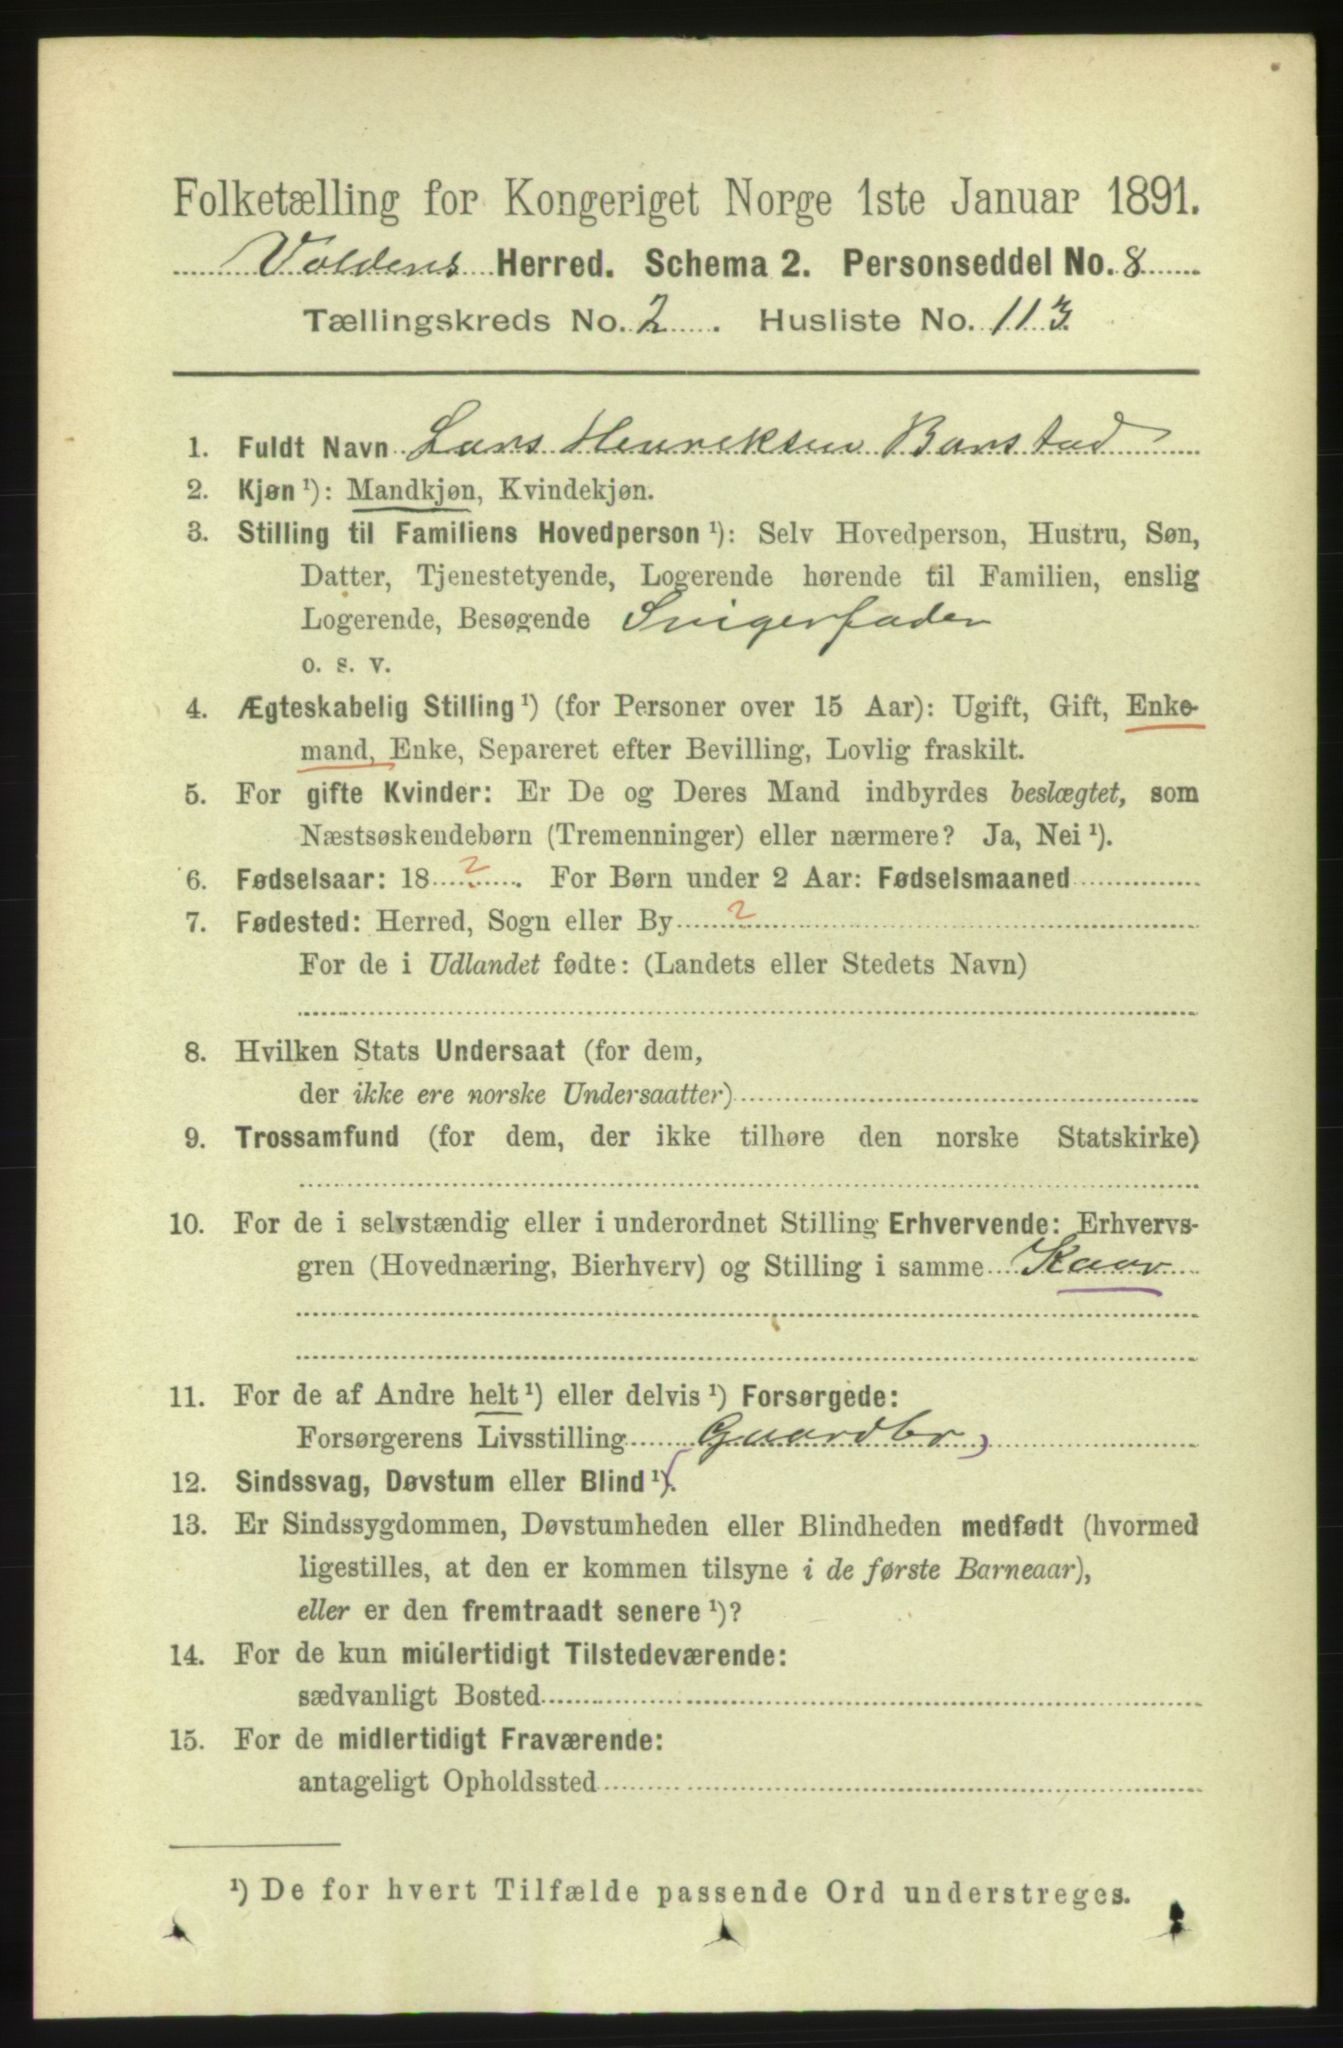 Folketælling for Kongeriget Norge 1ste Januar 1891.
Voldens Herred. Schema 2. Personseddel No. 8
Tællingskreds No. 2. Husliste No. 113
1. Fuldt Navn Lars Henriksen Barstad
2. Kjøn ¹): Mandkjøn, Kvindekjøn.
3. Stilling til Familiens Hovedperson ¹): Selv Hovedperson, Hustru, Søn,
Datter, Tjenestetyende, Logerende hørende til Familien, enslig
Logerende, Besøgende Svigerfader
o. s. v.
4. Ægteskabelig Stilling ¹) (for Personer over 15 Aar): Ugift, Gift, Enke-
mand, Enke, Separeret efter Bevilling, Lovlig fraskilt.
5. For gifte Kvinder: Er De og Deres Mand indbyrdes beslægtet, som
Næstsøskendebørn (Tremenninger) eller nærmere? Ja, Nei ¹).
6. Fødselsaar: 18 ?. For Børn under 2 Aar: Fødselsmaaned
7. Fødested: Herred, Sogn eller By ?
For de i Udlandet fødte: (Landets eller Stedets Navn)
8. Hvilken Stats Undersaat (for dem,
der ikke ere norske Undersaatter)
9. Trossamfund (for dem, der ikke tilhøre den norske Statskirke)
10. For de i selvstændig eller i underordnet Stilling Erhvervende: Erhvervs-
gren (Hovednæring, Bierhverv) og Stilling i samme Kaar
11. For de af Andre helt ¹) eller delvis ¹) Forsørgede:
Forsørgerens Livsstilling Gaardbr)
12. Sindssvag, Døvstum eller Blind ¹).
13. Er Sindssygdommen, Døvstumheden eller Blindheden medfødt (hvormed
ligestilles, at den er kommen tilsyne i de første Barneaar),
eller er den fremtraadt senere ¹)?
14. For de kun midlertidigt Tilstedeværende:
sædvanligt Bosted
15. For de midlertidigt Fraværende:
antageligt Opholdssted
¹) De for hvert Tilfælde passende Ord understreges.